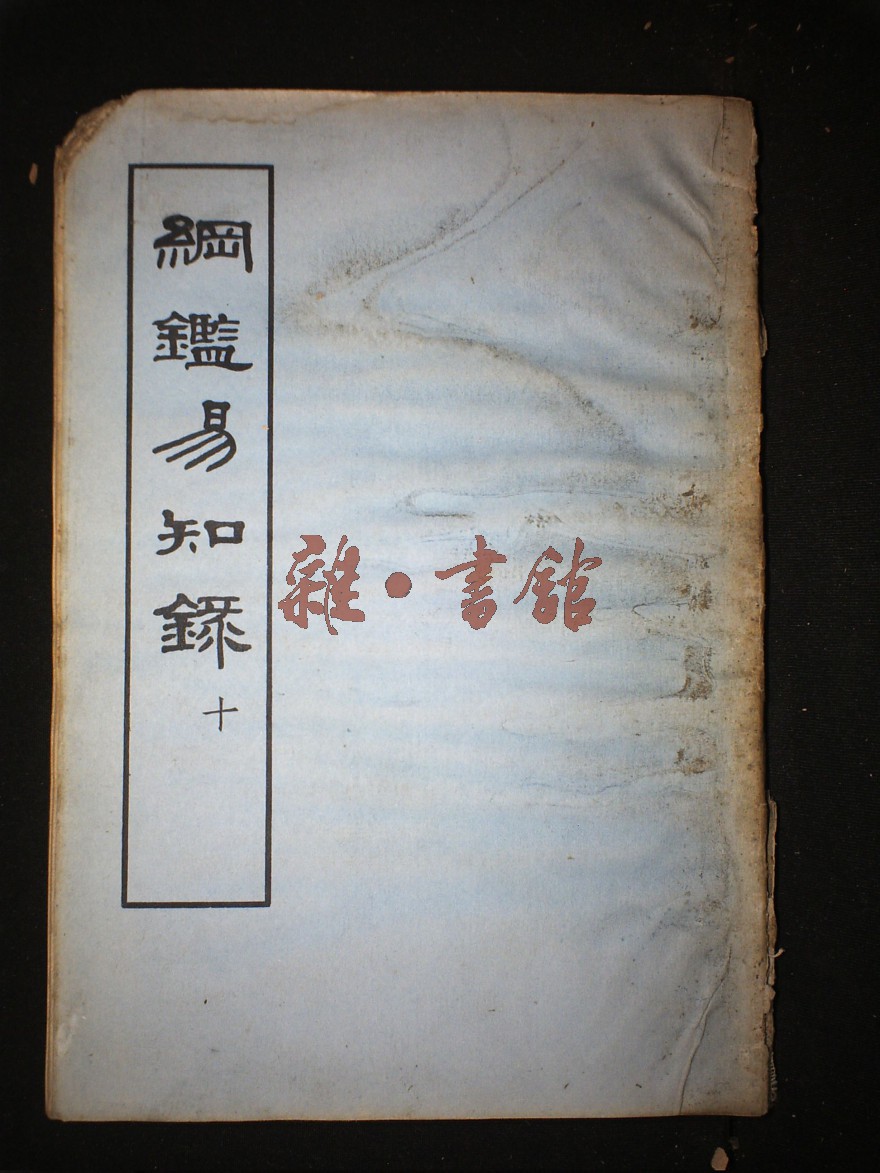 綱鑑易知錄 十
雜·書館